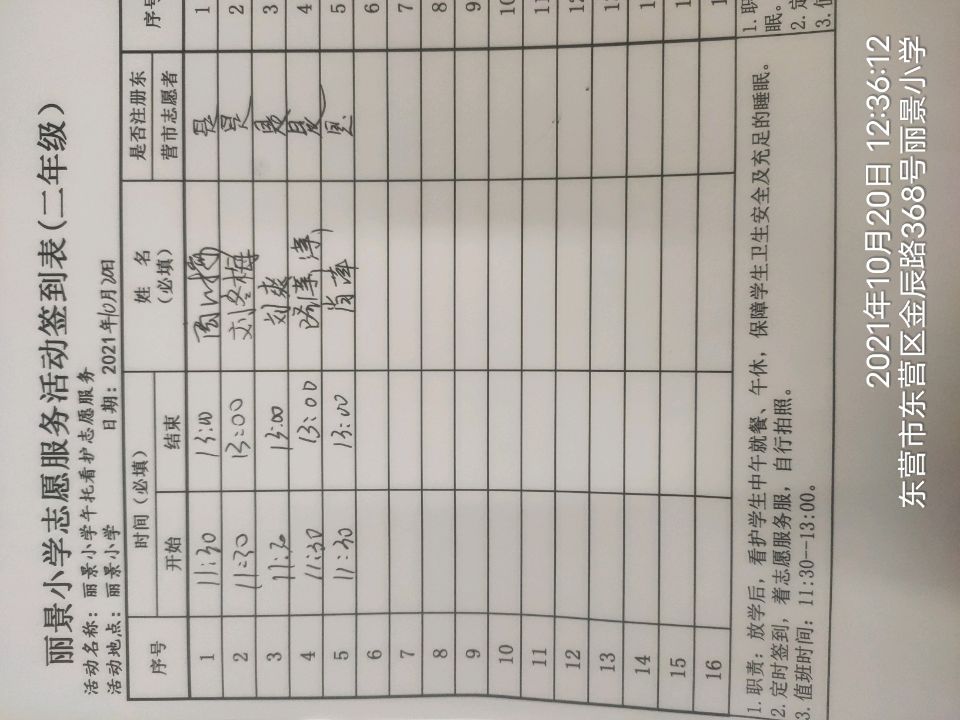 丽景小学志愿服务活动签到表(二年级)
活动名称: 丽景小学午托看护志愿服务
活动地点: 丽景小学 日期: 2021年10月20日
序号 时间(必填) 姓名(必填) 是否注册东营市志愿者 序号
开始 结束
1 11:30 13:00 是 1
2 11:30 13:00 刘冬梅 是 2
3 11:30 13:00 刘爽 是 3
4 11:30 13:00 是 4
5 11:30 13:00 肖南 是 5
6 6
7 7
8 8
9 9
10
11
12
13
14
15
16
1. 职责: 放学后, 看护学生中午就餐、午休, 保障学生卫生安全及充足的睡眠。
2. 定时签到, 着志愿服务服, 自行拍照。
3. 值班时间: 11:30--13:00。
1. 职
眠。
2. 定
3. 值
2021年10月20日 12:36:12
东营市东营区金辰路368号丽景小学